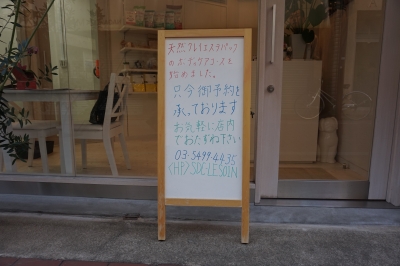 天然クレイエステパックの
ボディケアコースを
始めました。
只今御予約を
承っております
お気軽に店内
でおたずね下さい
03-5499-4435
(HP)SDC-LESOIN